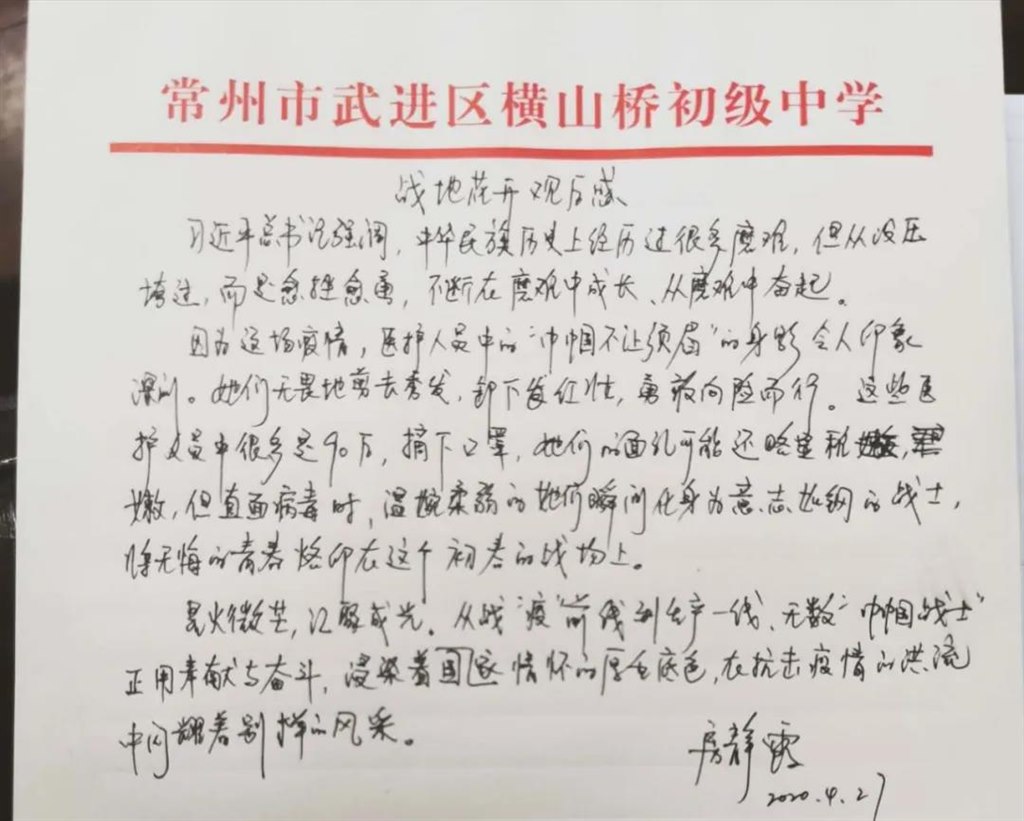 常州市武进区横山桥初级中学
战地花开观后感
习近平总书记强调，中华民族历史上经历过很多磨难，但从没压
垮过，而是愈挫愈勇，不断在磨难中成长、从磨难中奋起。
因为这场疫情，医护人员中的“巾帼不让须眉”的身影令人印象
深刻。她们无畏地剪去秀发，卸下红妆，勇敢向险而行。这些医
护人员中很多是90后，摘下口罩，她们的面孔可能还略显稚
嫩，但直面病毒时，温婉柔弱的她们瞬间化身为意志如钢的战士，
将无悔的青春烙印在这个初春的战场上。
星火微芒，汇聚成光。从战“疫”前线到生产一线，无数“巾帼战士”
正用奉献与奋斗，浸染着国家情怀的厚重底色，在抗击疫情的洪流
中闪耀着别样的风采。
房静霞
2020.4.27